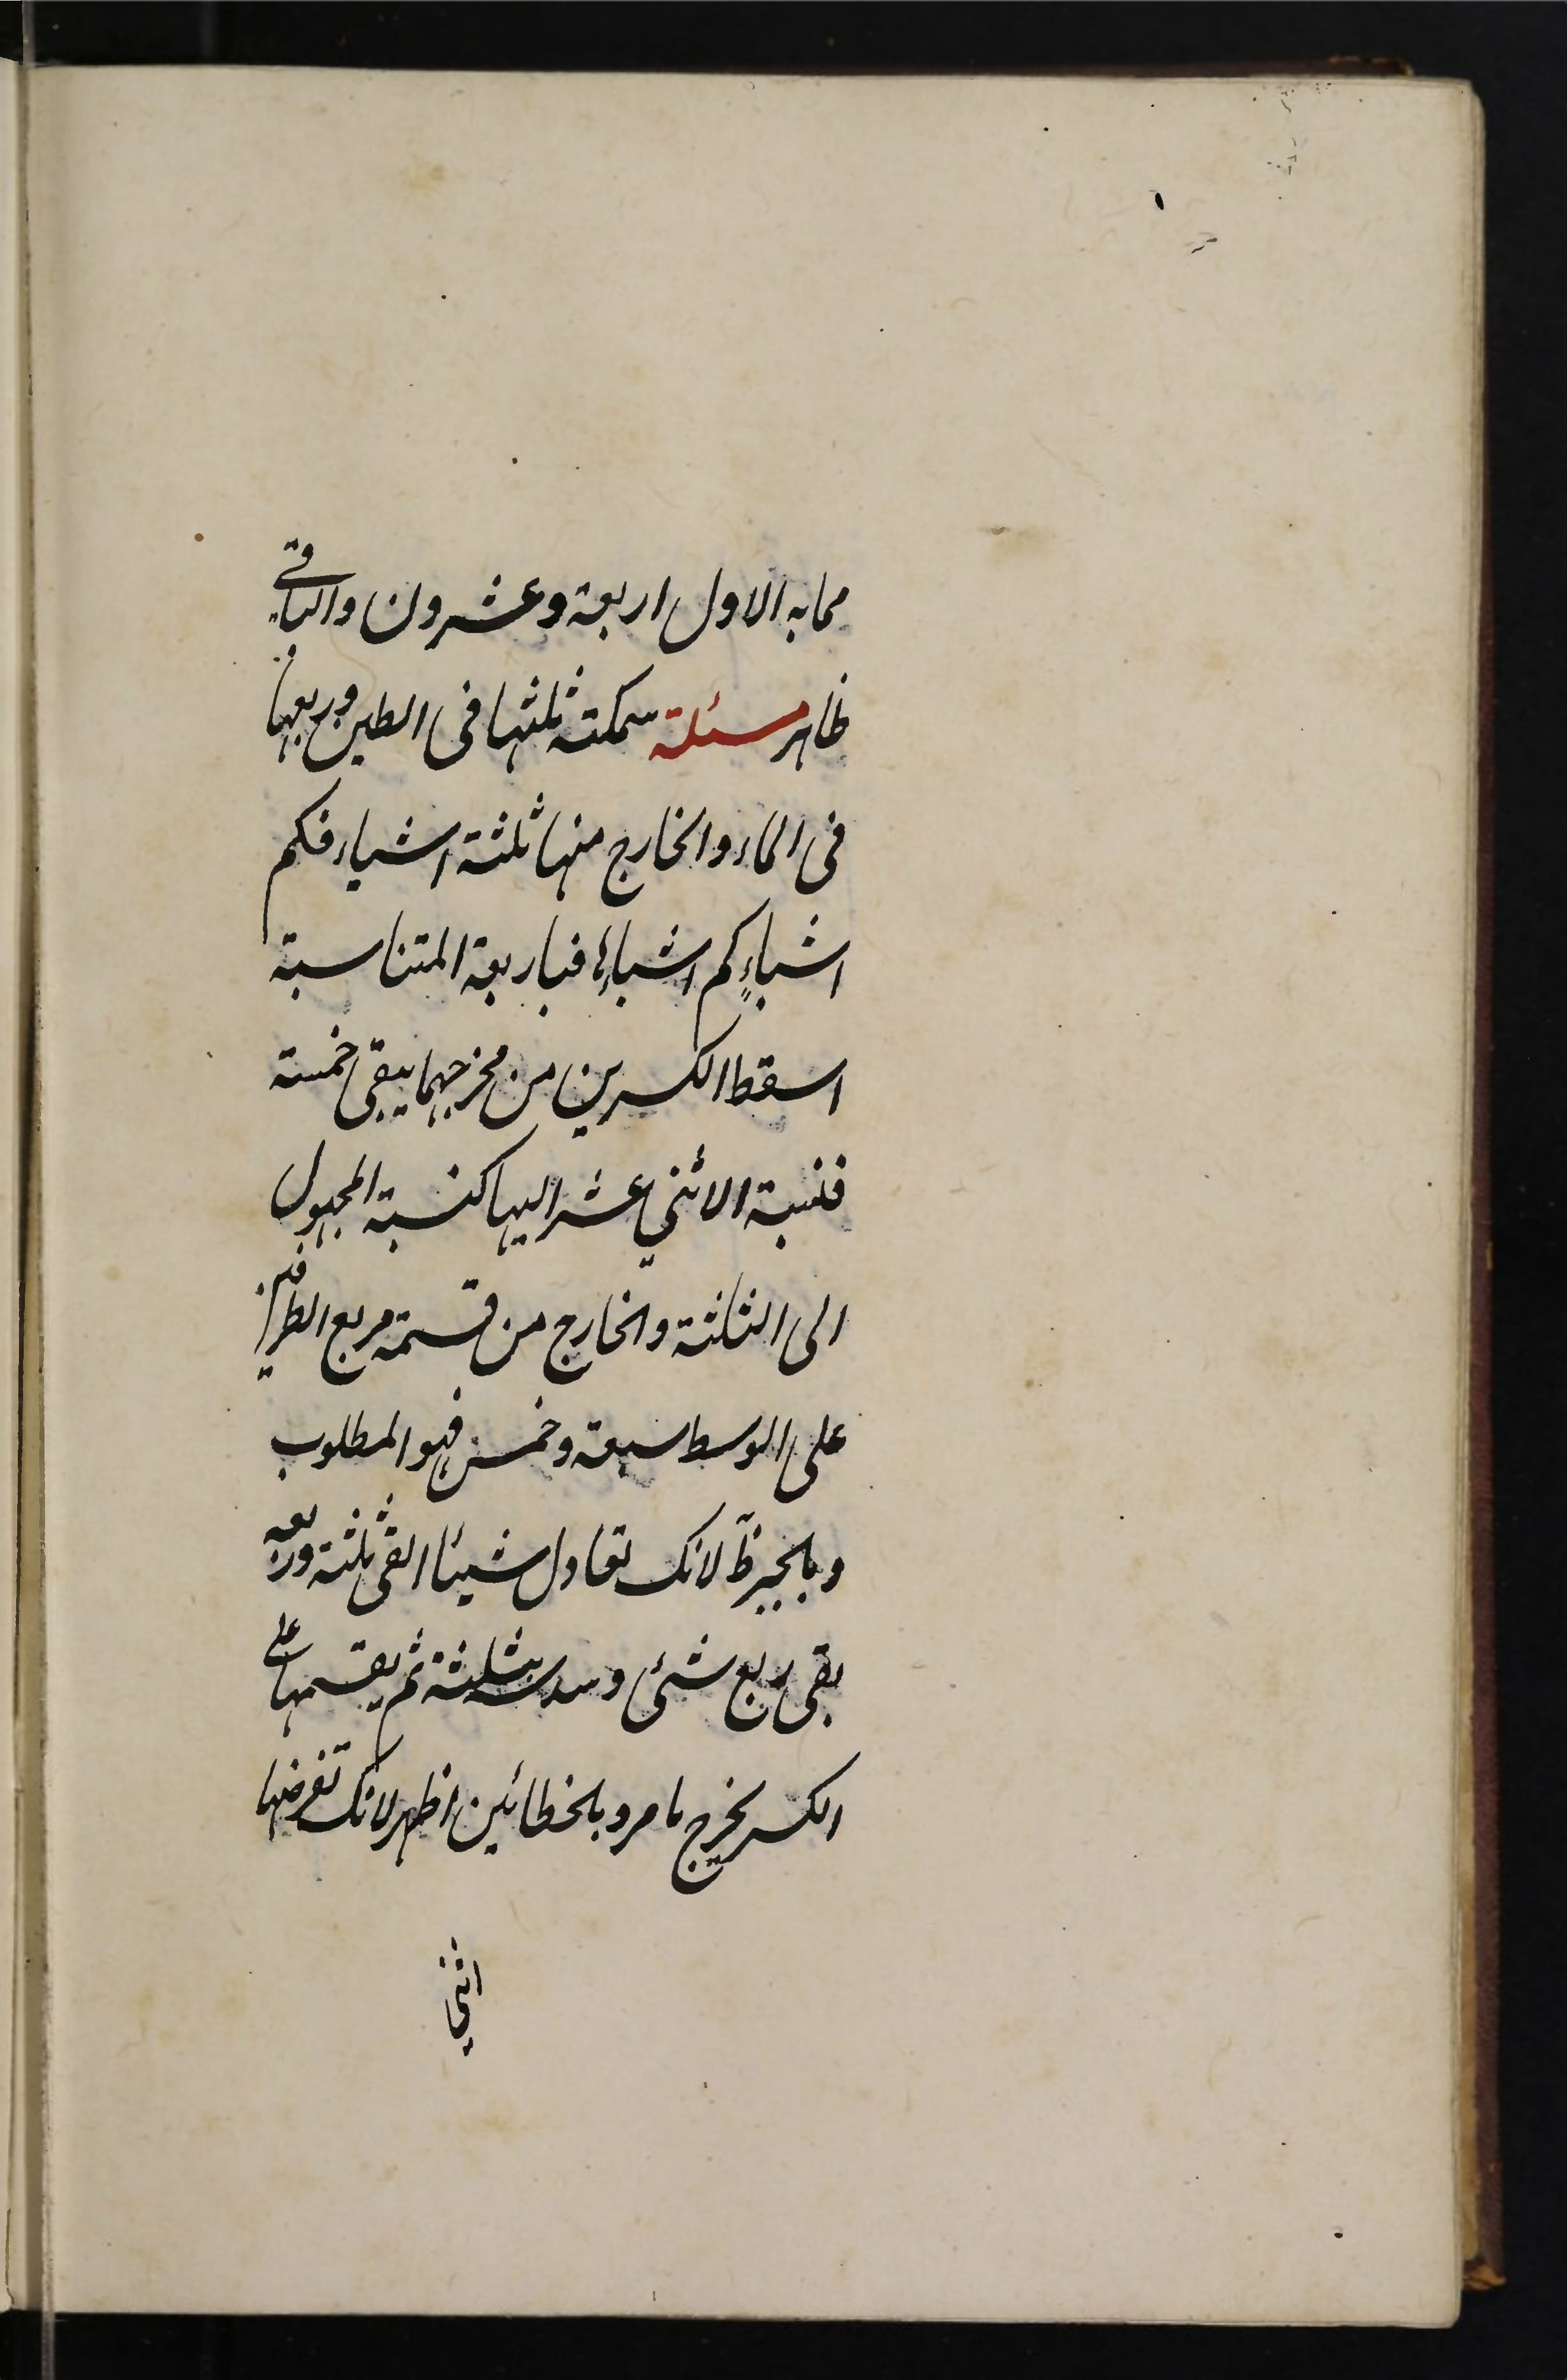 مما به الاول اربعة وعشرون والباقي
ظاهر مسئلة سمكة ثلثها فى الطين وربعها
فى الماء والخارج منها ثلثة اشبار فكم
اشبارٍ كم اشبارها فباربعة المتناسبة
اسقط الكسرين من مخرجهما يبقى خمسة
فنسبة الاثني عشر اليها كنسبة المجهول
الى الثلثة والخارج من قسمة مربع الطرفين
على الوسط سبعة وخمس فهو المطلوب
وبالجبر ظ لانك تعادل شيئا القى ثلثه وربعه
بقى ربع شئ وسدسه بثلثة ثم يقسمها على
الكسر يخرج ما مر وبالخطائين اظهر لانك تفرضها
اثني